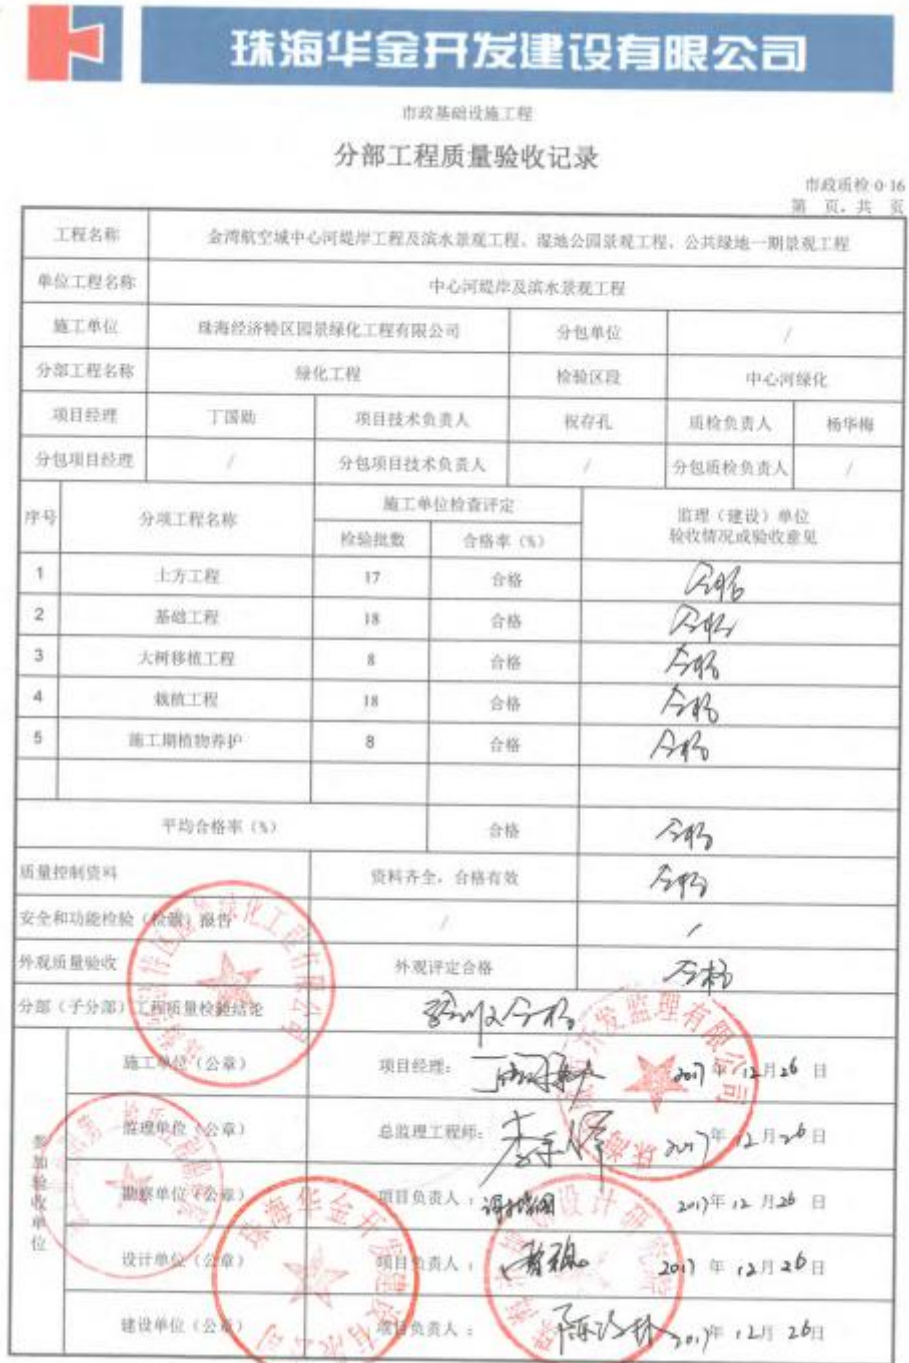 珠海华金开发建设有限公司
市政基础设施工程
分部工程质量验收记录
市政质检 0-16
第 页，共 页
工程名称 金湾航空城中心河堤岸工程及滨水景观工程、湿地公园景观工程、公共绿地一期景观工程
单位工程名称 中心河堤岸及滨水景观工程
施工单位 珠海经济特区园景绿化工程有限公司 分包单位 /
分部工程名称 绿化工程 检验区段 中心河绿化
项目经理 丁国勋 项目技术负责人 祝存孔 质检负责人 杨华梅
分包项目经理 / 分包项目技术负责人 / 分包质检负责人 /
序号 分项工程名称 施工单位检查评定 监理（建设）单位
验收情况或验收意见
检验批数 合格率（%）
1 土方工程 17 合格 合格
2 基础工程 18 合格 合格
3 大树移植工程 8 合格 合格
4 栽植工程 18 合格 合格
5 施工期植物养护 8 合格 合格
平均合格率（%） 合格 合格
质量控制资料 资料齐全，合格有效 合格
安全和功能检验（检测）报告 / /
外观质量验收 外观评定合格 合格
分部（子分部）工程质量检验结论 验收合格
参加验收单位
施工单位（公章） 项目经理： 2017年 12月26日
监理单位（公章） 总监理工程师： 2017年 12月26日
勘察单位（公章） 项目负责人： 2017年 12月26日
设计单位（公章） 项目负责人： 2017年 12月26日
建设单位（公章） 项目负责人： 2017年 12月26日
珠海华金开发建设有限公司